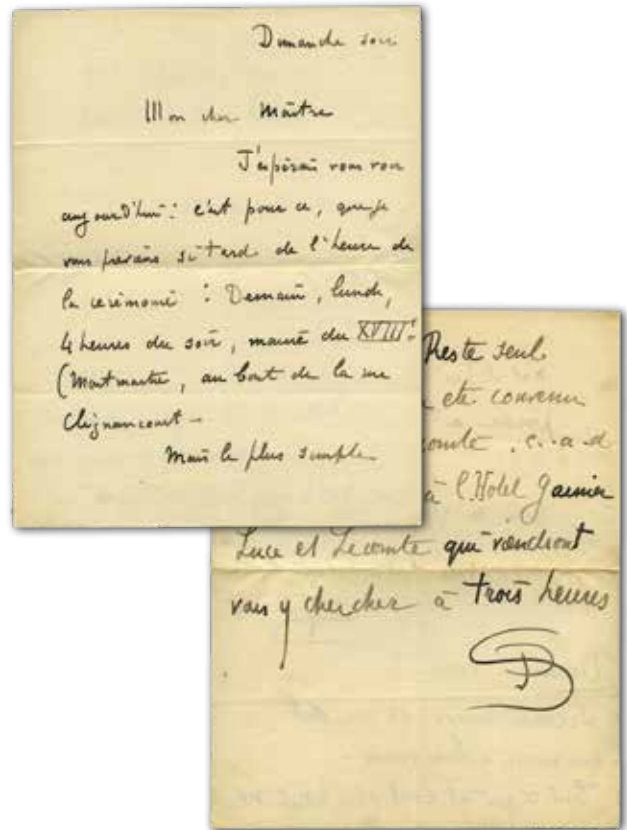 Dimanche soir
Mon cher Maître
J'espérais vous voir
aujourd'hui : c'est pour ce, que je
vous préviens si tard de l'heure de
la cérémonie : Demain, lundi,
4 heures du soir, mairie du XVIIIe
(Montmartre, au bout de la rue
Clignancourt —
Mais le plus simple
Reste seul.
été convenu
comte, c. a d
à l'Hotel Garnier
Luce et Lecomte qui viendront
vous y chercher à trois heures